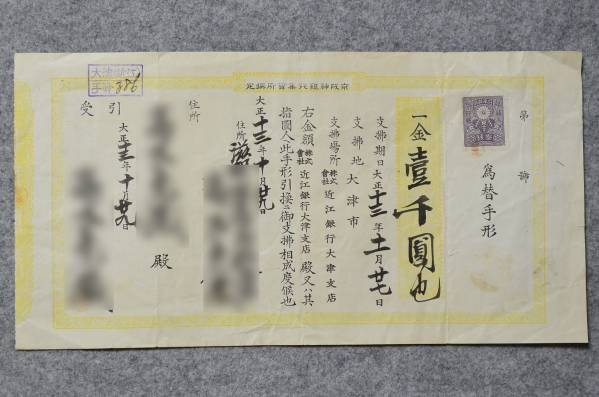 京阪神銀行集會所撰定
第 號
為替手形
一金壹千圓也
支拂期日大正十三年十一月廿七日
支拂地 大津市
支拂場所 株式會社 近江銀行大津支店
右金額 株式會社 近江銀行大津支店 殿又ハ其
指圖人此手形引換ニ御支拂相成度候也
大正十三年十月廿九日
住所
住所
殿
引受
大正十三年十月廿九日